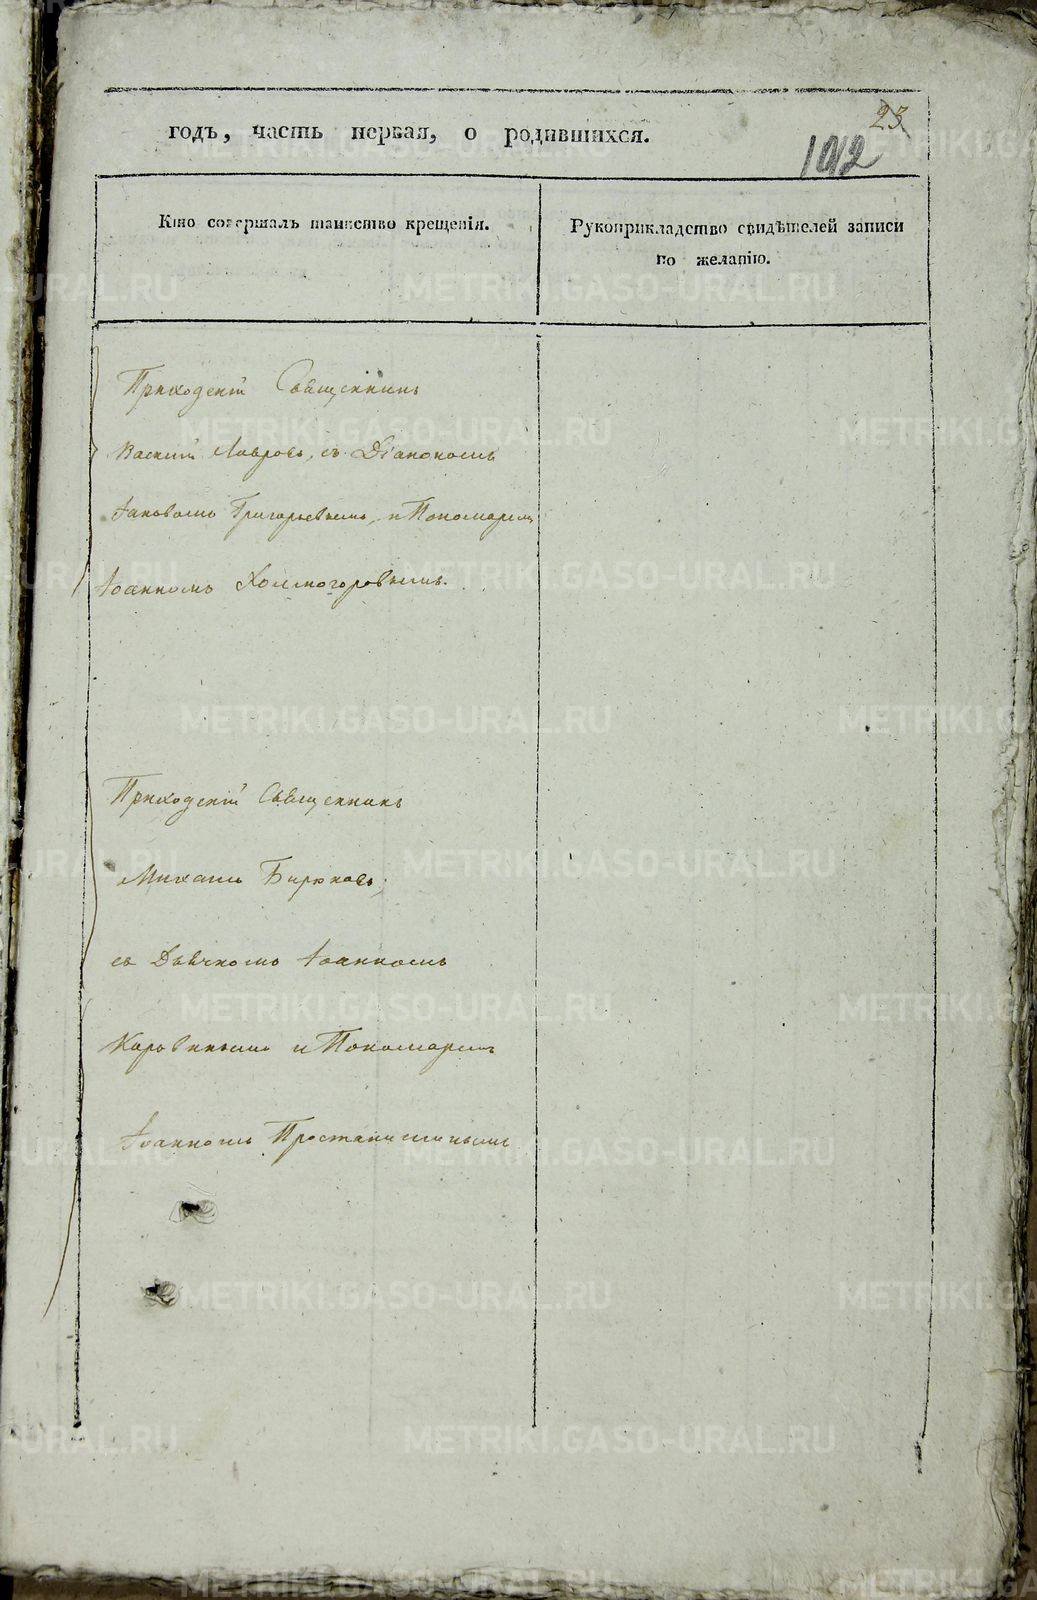 23
годъ, часть первая, о родившихся.
1012
Кто совершалъ таинство крещенія.
Рукоприкладство свидѣтелей записи
по желанію.
Приходскій Священникъ
Василій Лавровъ, съ Діакономъ
Іаковомъ Григорьевымъ, и Пономаремъ
Іоанномъ Холмогоровымъ.
Приходскій Священникъ
Михаилъ Бирюковъ,
съ Дьячкомъ Іоанномъ
Коровинымъ и Пономаремъ
Іоанномъ
METRIKI.GASO-URAL.RU